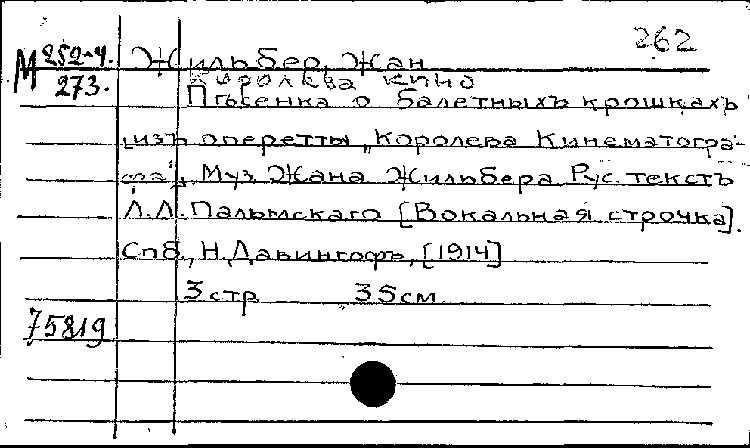 262
М 252-4.
273.
Жильбер, Жан
Королева кино
Пѣсенка о балетныхъ крошкахъ
[изъ оперетты „Королева Кинематогра-
фа“]. Муз Жана Жильбера Рус. текстъ
Л.Л. Пальмскаго [Вокальная строчка].
Спб., Н. Давингофъ, [1914]
3 стр 35 см
75819